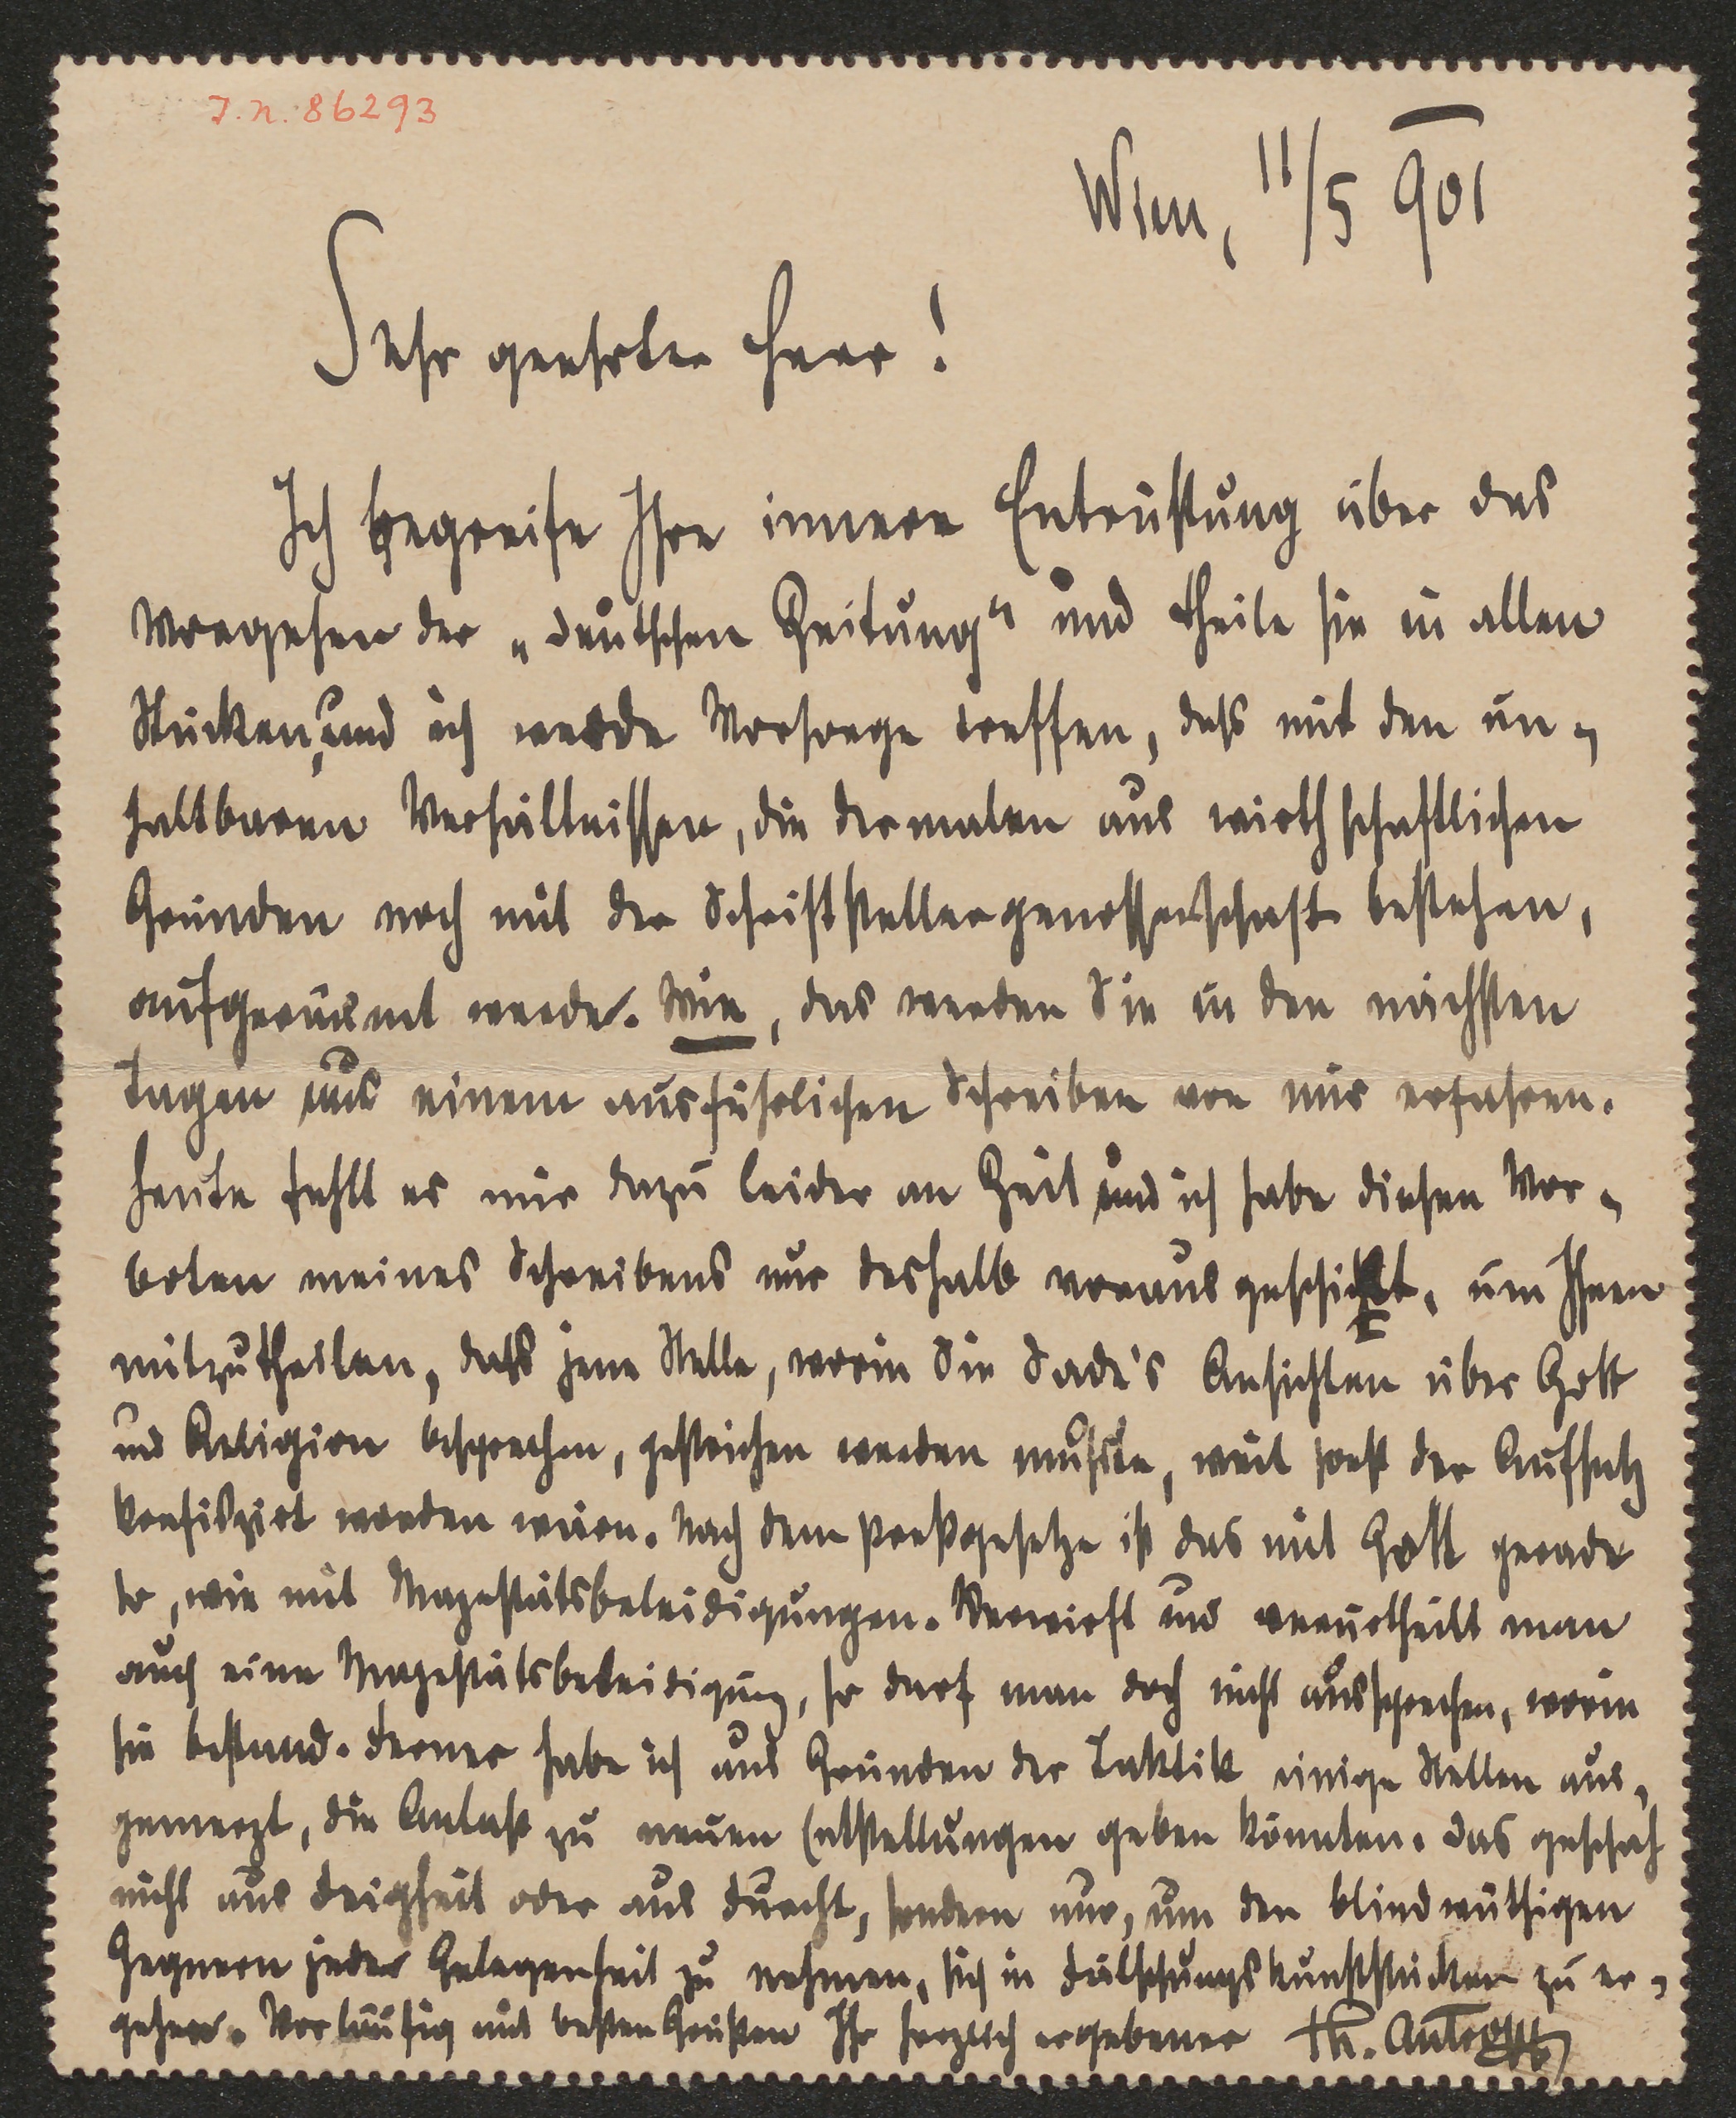 I. N. 86293
Wien, 11/5 901
Sehr geehrter Herr!
Ich begreife Ihre innere Entrüstung über das
Vorgehen der „deutschen Zeitung“ und theile sie in allen
Stücken, und ich werde Vorsorge treffen, daß mit den un-
haltbaren Verhältnissen, die dermalen aus wirthschaftlichen
Gründen noch mit der Schriftstellergenossenschaft bestehen,
aufgeräumt werde. Wie, das werden Sie in den nächsten
Tagen aus einem ausführlichen Schreiben von mir erfahren.
Heute fehlt es mir dazu leider an Zeit und ich habe diesen Vor-
boten meines Schreibens nur deshalb vorausgeschickt, um Ihnen
mitzutheilen, daß jene Stelle, worin Sie Sade's Ansichten über Gott
und Religion besprechen, gestrichen werden mußte, weil sonst der Aufsatz
konfiszirt worden wäre. Nach dem Preßgesetze ist das mit Gott gerade
so, wie mit Majestätsbeleidigungen. Verwirft und verurtheilt man
auch eine Majestätsbeleidigung, so darf man doch nicht aussprechen, worin
sie bestand. Ferner habe ich aus Gründen der Taktik einige Stellen aus-
gemerzt, die Anlaß zu neuen Entstellungen geben könnten. Das geschah
nicht aus Feigheit oder aus Furcht, sondern nur, um den blindwüthigen
Gegnern jede Gelegenheit zu nehmen, sich in Fälschungskunststücken zu er-
gehen. Vorläufig mit besten Grüßen Ihr herzlich ergebener Th. Antropp